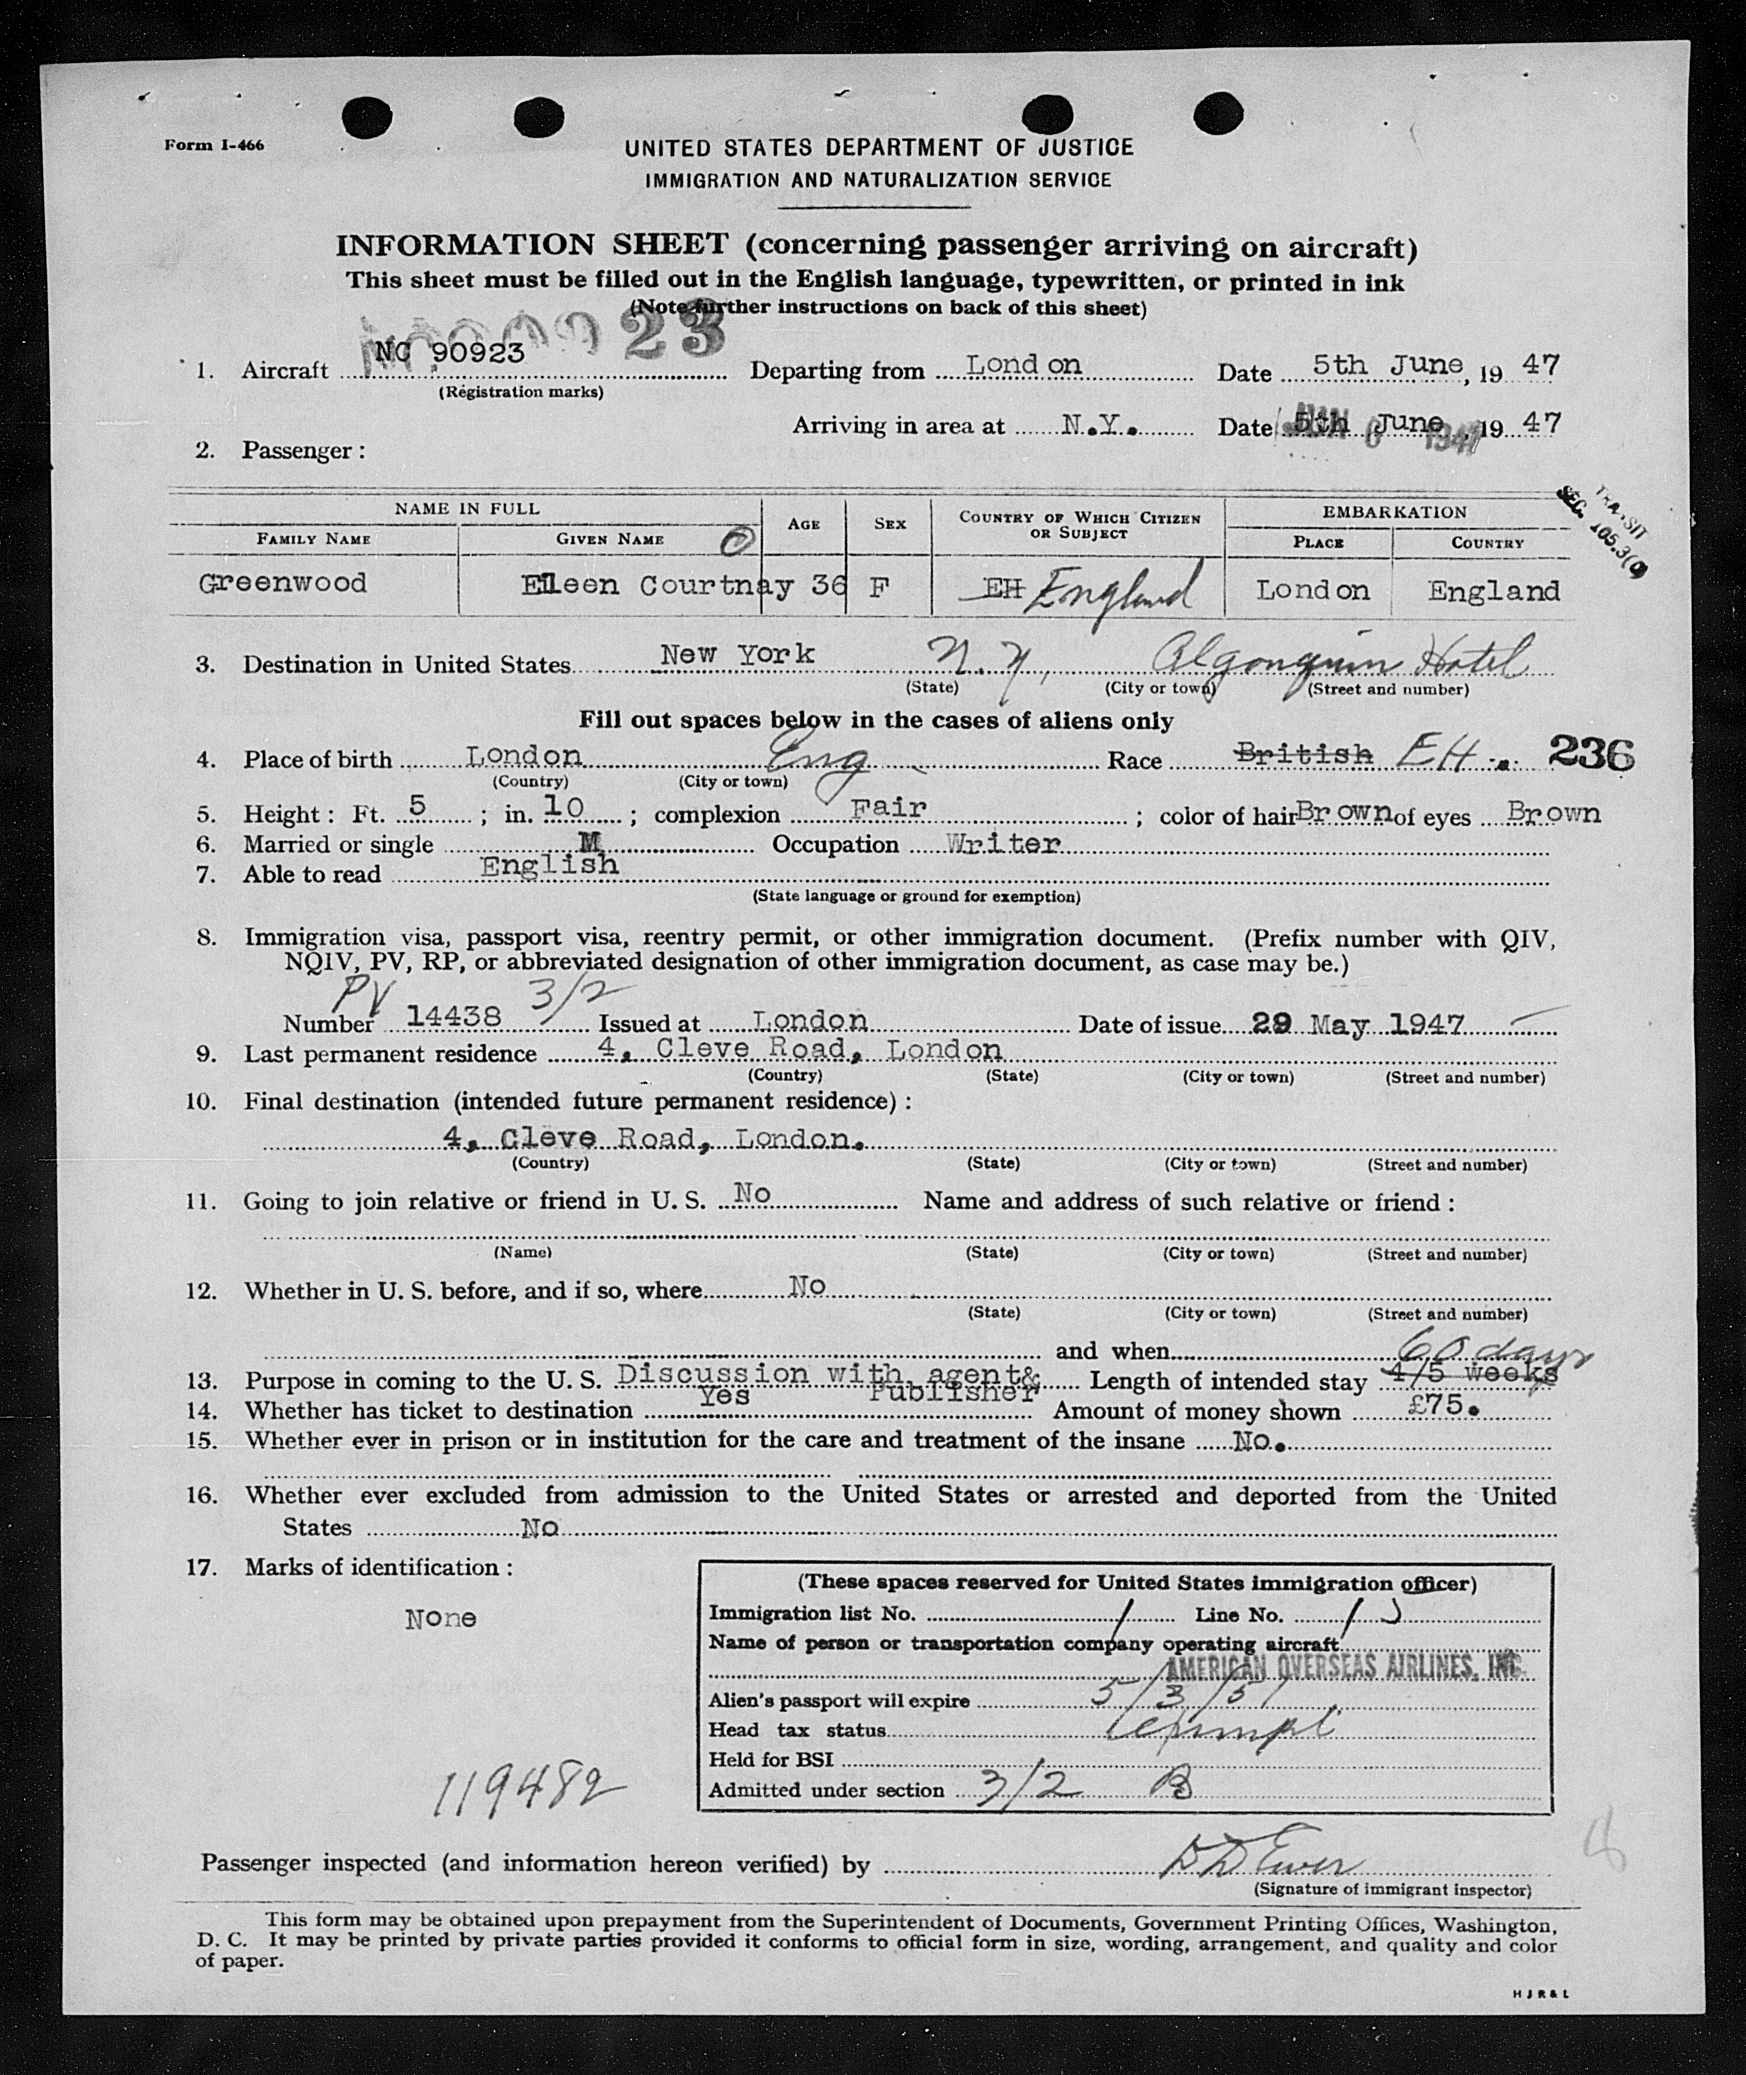 Form I-466
UNITED STATES DEPARTMENT OF JUSTICE
IMMIGRATION AND NATURALIZATION SERVICE
INFORMATION SHEET (concerning passenger arriving on aircraft)
This sheet must be filled out in the English language, typewritten, or printed in ink
(Note further instructions on back of this sheet)
23
1. Aircraft NC 90923 Departing from London Date 5th June, 19 47
(Registration marks)
Arriving in area at N.Y. Date 5th June, 19 47
JUN 6 1947
2. Passenger :
TRANSIT
SEC. 105.3(
NAME IN FULL AGE SEX COUNTRY OF WHICH CITIZEN OR SUBJECT EMBARKATION
FAMILY NAME GIVEN NAME PLACE COUNTRY
Greenwood Eileen Courtnay 36 F EH England London England
3. Destination in United States New York N.Y, Algonquin Hotel
(State) (City or town) (Street and number)
Fill out spaces below in the cases of aliens only
4. Place of birth London Eng Race British EH 236
(Country) (City or town)
5. Height : Ft. 5 ; in. 10 ; complexion Fair ; color of hair Brown of eyes Brown
6. Married or single M Occupation Writer
7. Able to read English
(State language or ground for exemption)
8. Immigration visa, passport visa, reentry permit, or other immigration document. (Prefix number with QIV,
NQIV, PV, RP, or abbreviated designation of other immigration document, as case may be.)
PV 3/2
Number 14438 Issued at London Date of issue 29 May 1947
9. Last permanent residence 4, Cleve Road, London
(Country) (State) (City or town) (Street and number)
10. Final destination (intended future permanent residence) :
4, Cleve Road, London.
(Country) (State) (City or town) (Street and number)
11. Going to join relative or friend in U. S. No Name and address of such relative or friend :
(Name) (State) (City or town) (Street and number)
12. Whether in U. S. before, and if so, where No
(State) (City or town) (Street and number)
and when
60 days
13. Purpose in coming to the U. S. Discussion with agent& Publisher Length of intended stay 4/5 weeks
14. Whether has ticket to destination Yes Amount of money shown £75.
15. Whether ever in prison or in institution for the care and treatment of the insane No.
16. Whether ever excluded from admission to the United States or arrested and deported from the United
States No
17. Marks of identification :
None
(These spaces reserved for United States immigration officer)
Immigration list No. 1 Line No. 1
Name of person or transportation company operating aircraft
AMERICAN OVERSEAS AIRLINES, INC.
Alien's passport will expire 5/3/51
Head tax status exempt
Held for BSI
Admitted under section 3/2 B
119482
Passenger inspected (and information hereon verified) by
(Signature of immigrant inspector)
This form may be obtained upon prepayment from the Superintendent of Documents, Government Printing Offices, Washington,
D. C. It may be printed by private parties provided it conforms to official form in size, wording, arrangement, and quality and color
of paper.
H J R & L